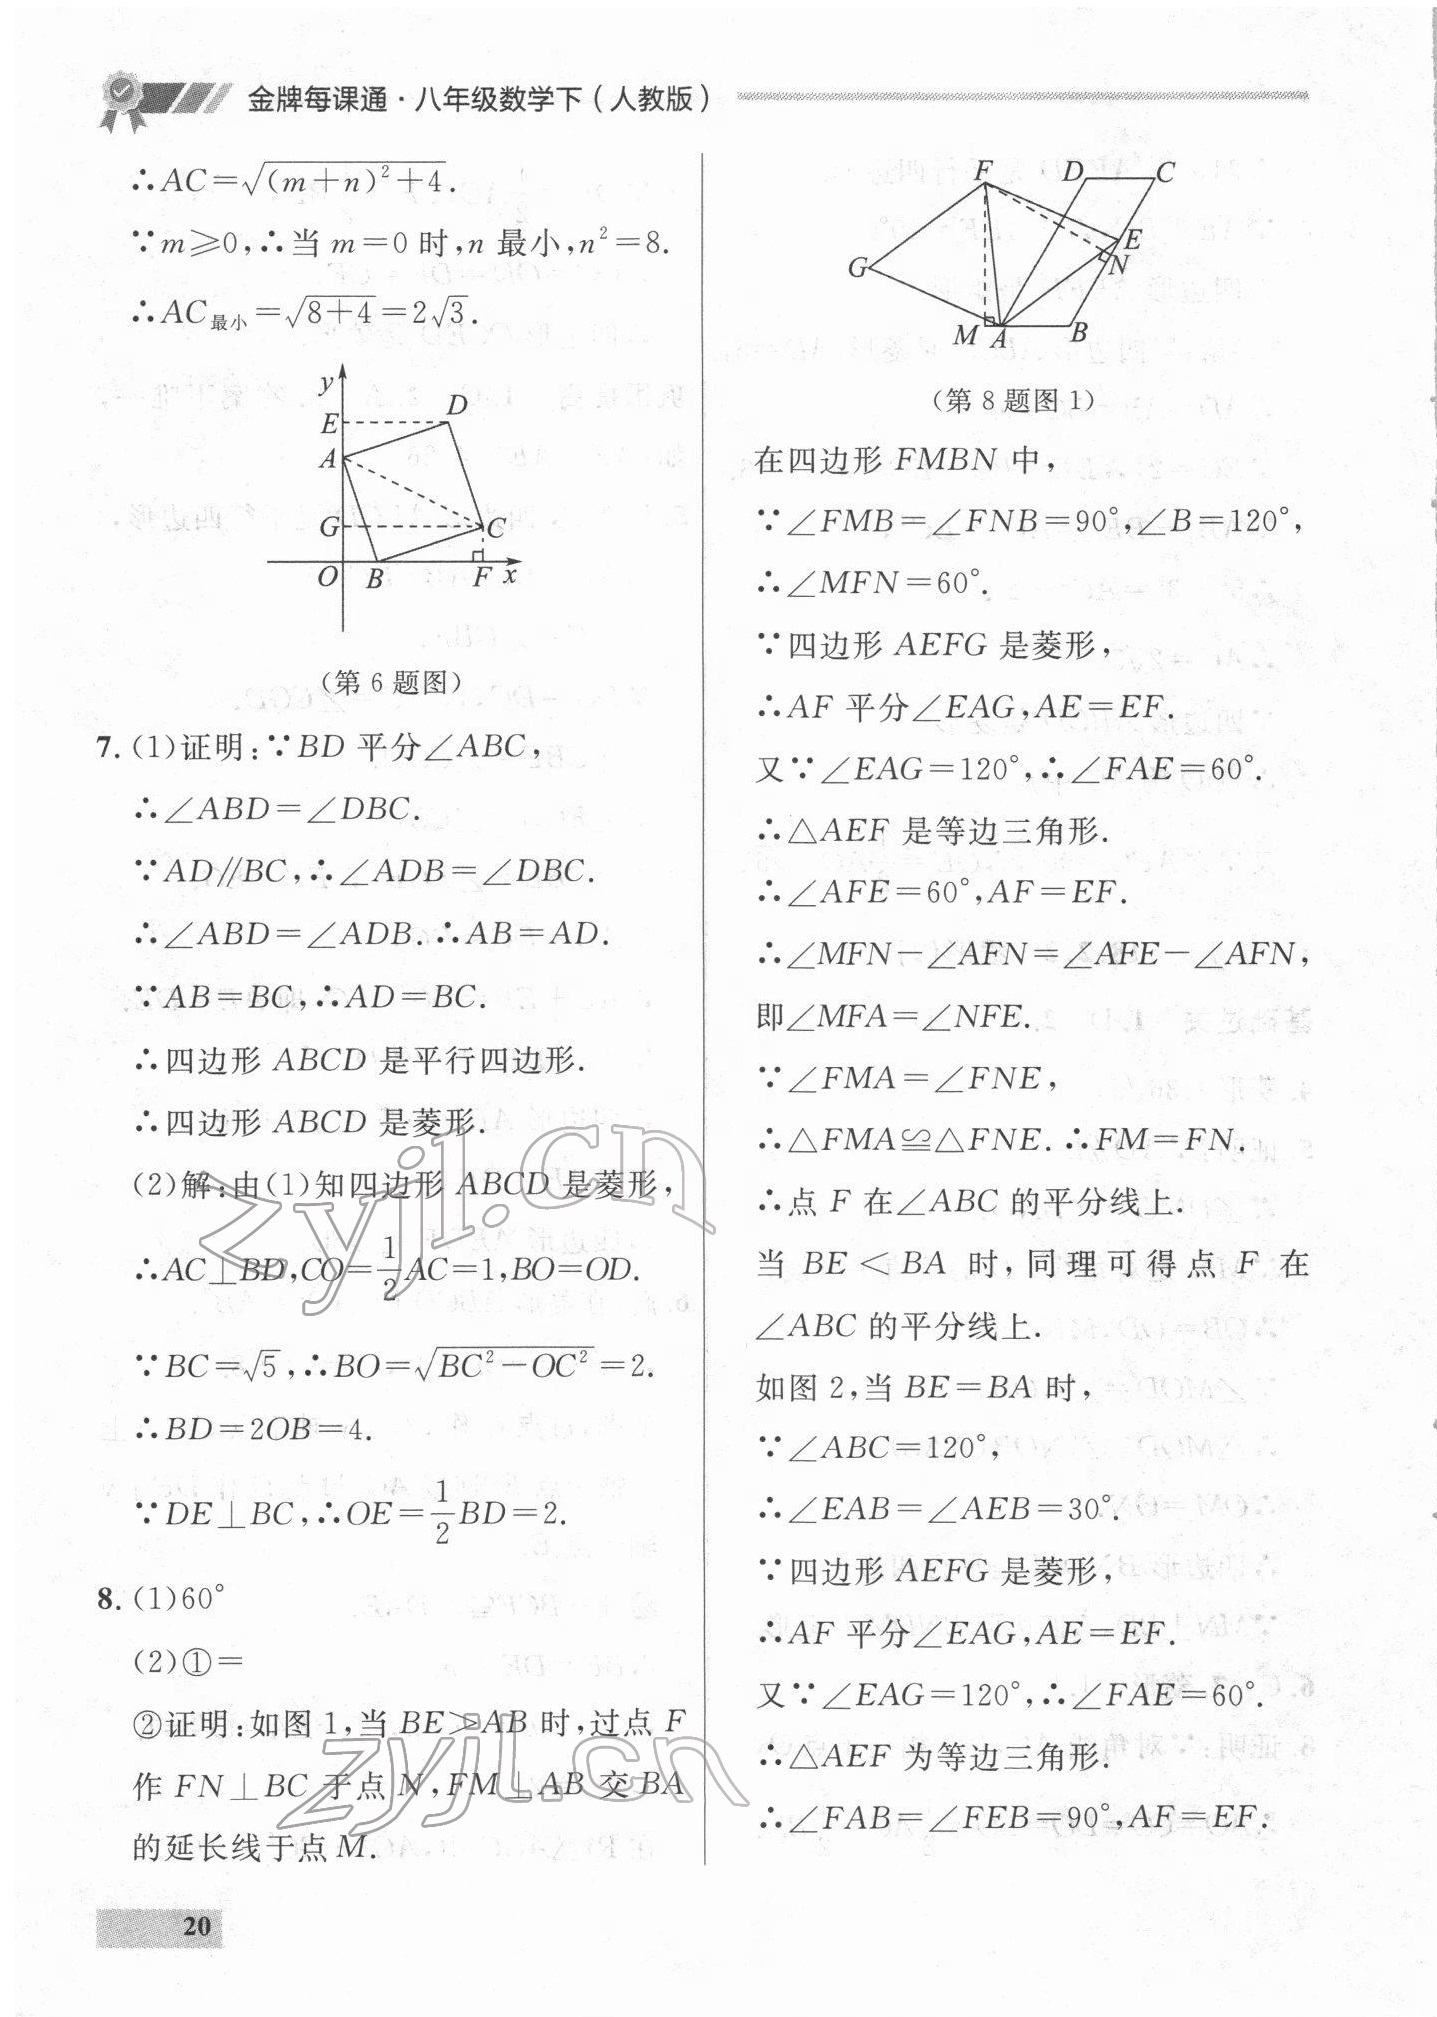 金牌每课通·八年级数学下（人教版）
∴AC=√(m+n)²+4.
∵m≥0,∴当m=0时,n最小,n²=8.
∴AC最小=√8+4=2√3.
y
E D
A
G C
O B F x
(第6题图)
7.(1)证明:∵BD平分∠ABC,
∴∠ABD=∠DBC.
∵AD∥BC,∴∠ADB=∠DBC.
∴∠ABD=∠ADB.∴AB=AD.
∵AB=BC,∴AD=BC.
∴四边形ABCD是平行四边形.
∴四边形ABCD是菱形.
(2)解:由(1)知四边形ABCD是菱形,
∴AC⊥BD,CO=1/2AC=1,BO=OD.
∵BC=√5,∴BO=√BC²-OC²=2.
∴BD=2OB=4.
∵DE⊥BC,∴OE=1/2BD=2.
8.(1)60°
(2)①=
②证明:如图1,当BE>AB时,过点F
作FN⊥BC于点N,FM⊥AB交BA
的延长线于点M.
F D C
E
G N
M A B
(第8题图1)
在四边形FMBN中,
∵∠FMB=∠FNB=90°,∠B=120°,
∴∠MFN=60°.
∵四边形AEFG是菱形,
∴AF平分∠EAG,AE=EF.
又∵∠EAG=120°,∴∠FAE=60°.
∴△AEF是等边三角形.
∴∠AFE=60°,AF=EF.
∴∠MFN-∠AFN=∠AFE-∠AFN,
即∠MFA=∠NFE.
∵∠FMA=∠FNE,
∴△FMA≌△FNE.∴FM=FN.
∴点F在∠ABC的平分线上.
当BE<BA时,同理可得点F在
∠ABC的平分线上.
如图2,当BE=BA时,
∵∠ABC=120°,
∴∠EAB=∠AEB=30°.
∵四边形AEFG是菱形,
∴AF平分∠EAG,AE=EF.
又∵∠EAG=120°,∴∠FAE=60°.
∴△AEF为等边三角形.
∴∠FAB=∠FEB=90°,AF=EF.
20
zyjl.cn
zyjl.cn